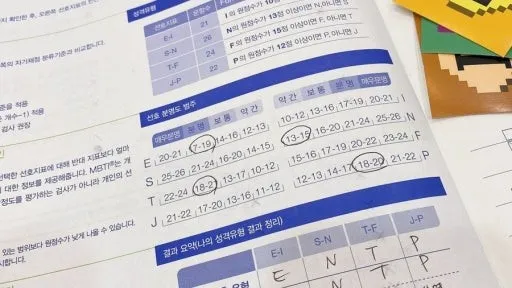 지 확인한 후, 오른쪽 선호지표에
쪽의 자기채점 분류기준과 비교합니다.
준을 적용
개 수-1) 적용
검사 권장
성격유형
선호지표 문항수
E-I 21
S-N 26
T-F 24
J-P 22
I의 원점수가 10점
N의 원점수가 13점 이상이면 N, 아니면
F의 원점수가 15점 이상이면 F, 아니면 T
P의 원점수가 12점 이상이면 P, 아니면 J
선호 분명도 범주
매우분명 분명 보통 약간 약간 보통 분명 매우분명
E 20-21 17-19 14-16 12-13 10-12 13-16 17-19 20-21 I
S 25-26 21-24 16-20 14-15 13-15 16-20 21-24 25-26 N
T 22-24 18-21 13-17 15-16 17-20 21-22 F
J 21-22 17-20 13-16 11-12 12-13 14-17 18-20 21-22 P
선택한 선호지표에 대해 반대 지표보다 얼마
에 대한 정보를 제공해줍니다. MBTI®는 개
정도를 평가하는 검사가 아니라 개인의 선
있는 범위보다 원점수가 낮게 나올 수 있습니다.
시합니다.
결과 요약(나의 성격유형 결과 정리)
E-I S-N T-F J-P
유형 E N T P
N T P